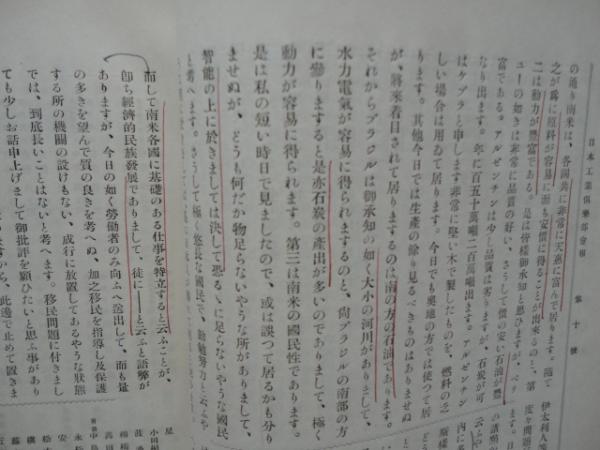 日本工業倶樂部會報　第十號
の通り南米は、各國共に非常に天惠に富んで居ります。隨て
之が爲に原料が容易に而も安價に得ることが出來るのと、第
二は動力が豐富である。是は皆樣御承知と思ひますが、ペリ
ューの如きは非常に品質の好い、さうして價の安い石油が豐
富である。アルゼンチンは少と品質は劣りますが、石炭が可
なり出ます。年に百五十萬噸二百萬噸出ます。アルゼンチン
はケブラと申します非常に堅い木で製したものを、燃料の乏
しい場合は用ゐて居ります。今日でも奧地の方では使つて居
ります。其他今日では生産の餘り見るべきものはありませぬ
が、將來着目されて居りまするのは南の方の石油であります。
それからブラジルは御承知の如く大小の河川がありまして、
水力電氣が容易に得られまするのと、尙ブラジルの南部の方
に參りますると是亦石炭の產出が多いのでありまして、極く
動力が容易に得られます。第三は南米の國民性であります。
是は私の短い時日で見ましたので、或は誤つて居るかも分り
ませぬが、どうも何だか物足らないやうな所がありまして、
智能の上に於きましては決して恐るゝに足らないやうな國民
と考へます。さうして極く悠長な國民で、
而して南米各國に基礎のある仕事を特立すると云ふことが、
卽ち經濟的民族發展でありまして、徒に――と云ふと語弊が
ありますが、今日の如く勞働者のみ向ふへ送出して、而も量
の多きを望んで質の良きを考へぬ、加之移民を指導し及保護
する所の機關の設けもない、成行に放置してあるやうな狀態
では、到底長いことはないと考へます。移民問題に付きまし
ても少しお話申上げまして御批評を願ひたいと思ふ事があり
ますから、此邊で止めて置きま